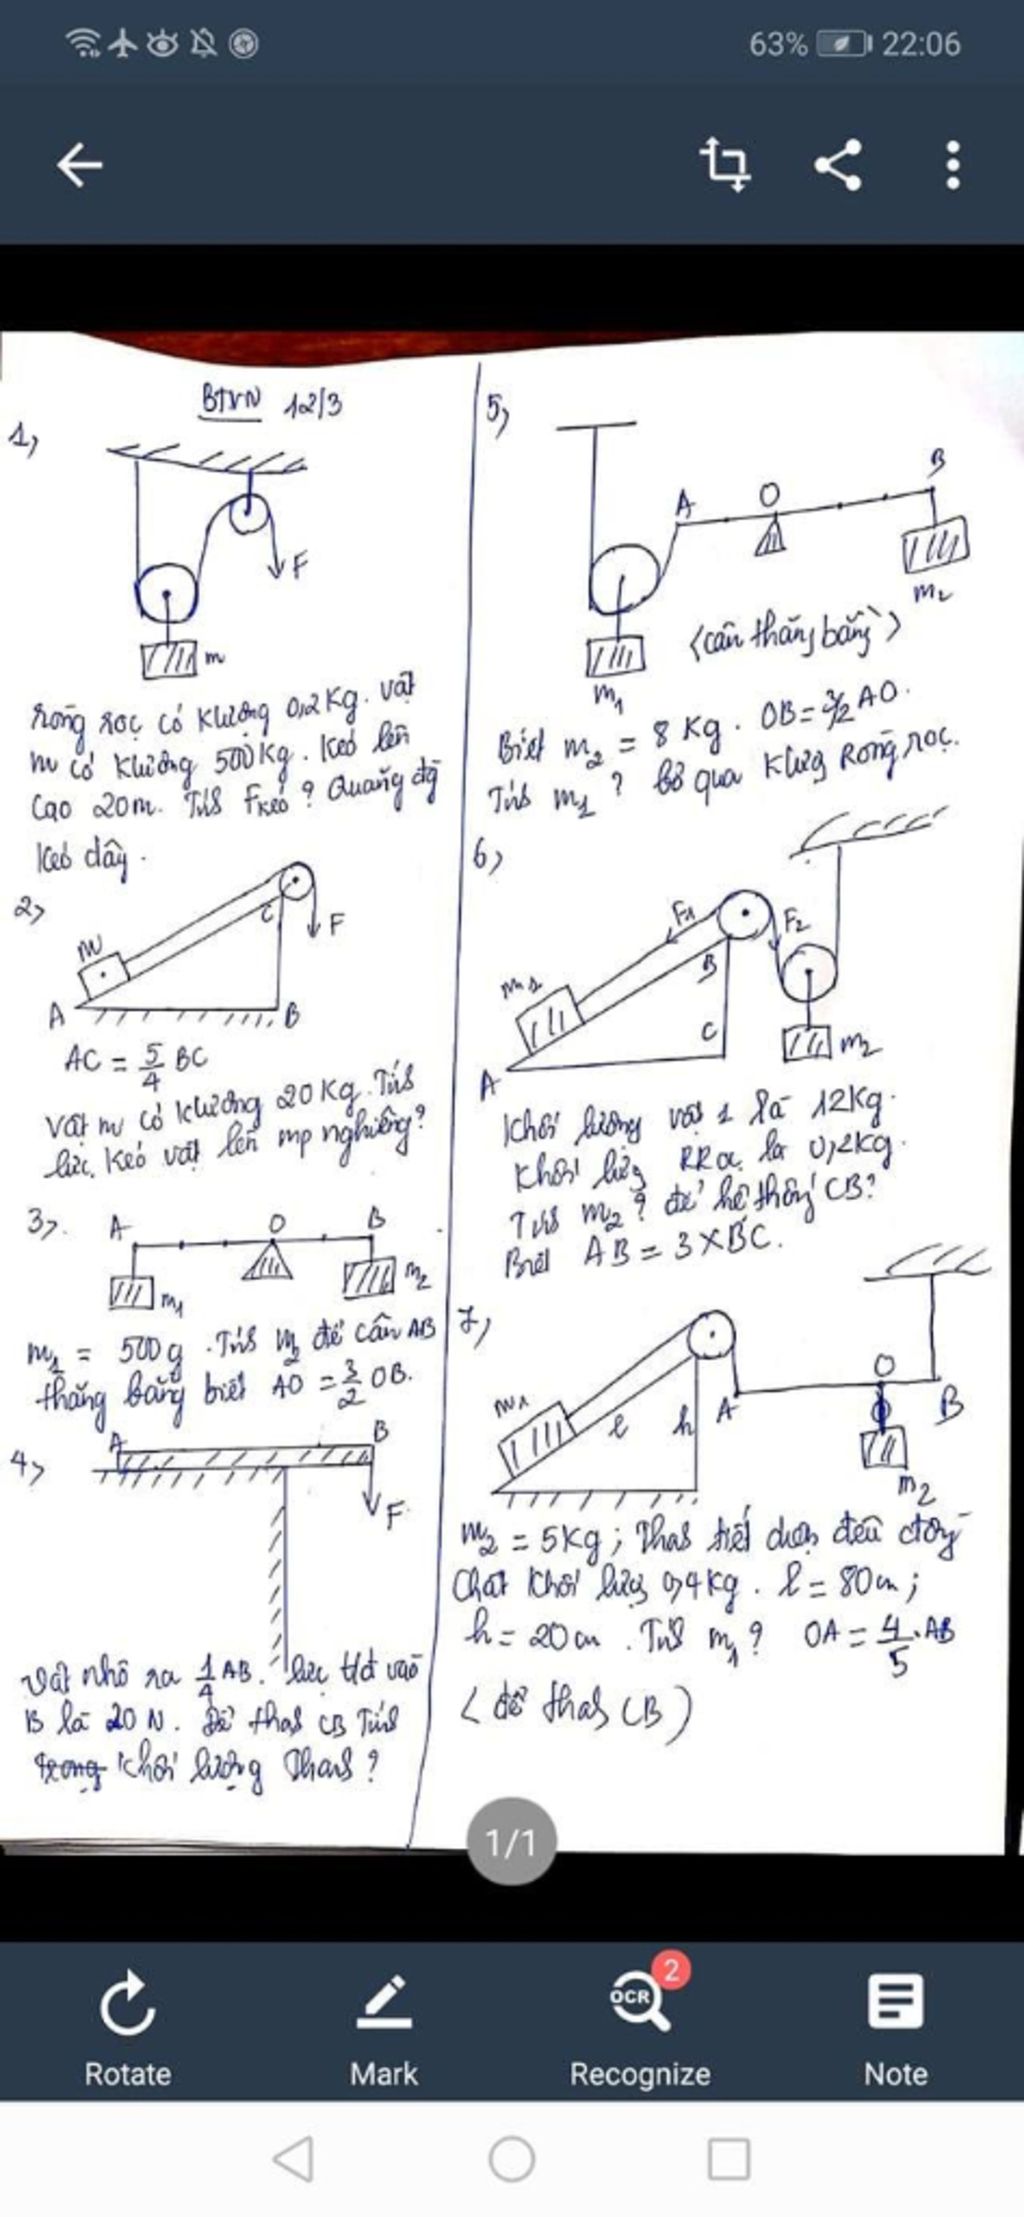 63% 22:06
BTVN 12/3
1,
F
m
ròng rọc có khlượng 0,2Kg. vật
m có khlượng 500Kg. Kéo lên
cao 20m. Tính Fkéo? Quãng đg
kéo dây.
2,
m
C
F
A
B
AC = 5/4 BC
Vật m có khlượng 20Kg. Tính
lực kéo vật lên mp nghiêng?
3,
A O B
m1 m2
m1 = 500g. Tính m2 để cân AB
thăng bằng biết AO = 3/2 OB.
4,
A B
F
Vật nhô ra 1/4 AB. lực t/d vào
B là 20 N. Để thah CB Tính
trọng khối lượng thah?
5,
A O B
m2
<cân thăng bằng>
m1
Biết m2 = 8 Kg. OB = 3/2 AO.
Tính m1? bỏ qua Klượg Ròng rọc.
6,
F1 F2
m1
B
C
m2
A
Khối lượng vật 1 là 12Kg.
Khối lượg RRọc là 0,2Kg.
Tính m2? để hệ thống CB?
Biết AB = 3 x BC.
7,
m1
l h A O B
m2
m2 = 5Kg; Thah tiết diện đều đồng
Chất khối lượg 0,4Kg. l = 80cm;
h = 20cm. Tính m1? OA = 4/5 . AB
<để thah CB)
1/1
2
OCR
Rotate Mark Recognize Note